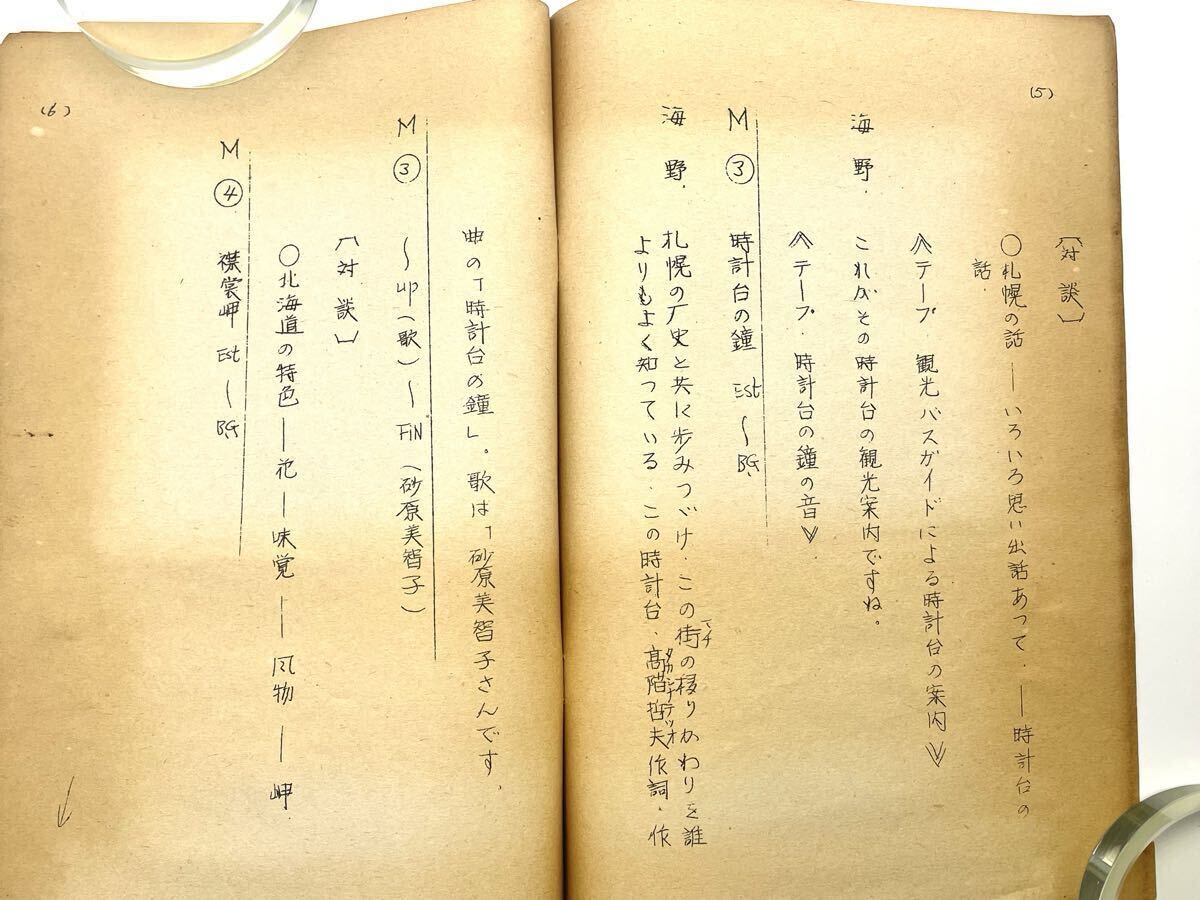 (5)
〔対談〕
○札幌の話――いろいろ思い出話あって.――時計台の
話.
≪テープ 観光バスガイドによる時計台の案内≫
海野. これがその時計台の観光案内ですね。
≪テープ 時計台の鐘の音≫
M③ 時計台の鐘 Est〜BG.
海野. 札幌の厂史と共に歩みつづけ.この街の移りかわりを誰
マチ
よりもよく知っている.この時計台.高階哲夫作詞.作
タカシナテツオ
(6)
曲の「時計台の鐘」。歌は「砂原美智子さんです.
M③ 〜up(歌)〜FiN(砂原美智子)
〔対談〕
○北海道の特色――花―味覚――風物――岬
M④ 襟裳岬 Est〜BG